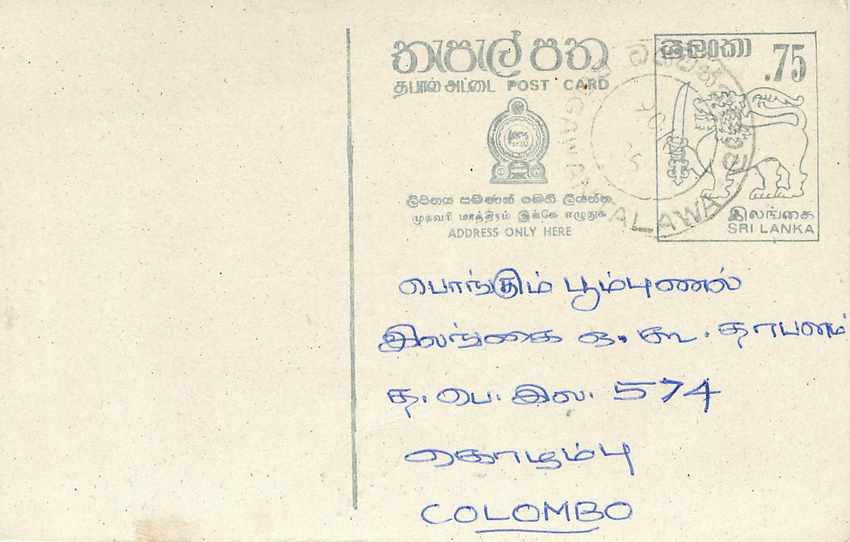 තැපැල් පත
தபால் அட்டை POST CARD
ලිපිනය පමණක් මෙහි ලියන්න
முகவரி மாத்திரம் இங்கே எழுதுக
ADDRESS ONLY HERE
ශ්‍රී ලංකා
.75
இலங்கை
SRI LANKA
பொங்கும் பூம்புனல்
இலங்கை ஒ. கூ. தாபனம்
த. பெ. இல. 574
கொழும்பு
COLOMBO